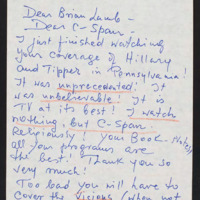 Dear Brian Lamb -
Dear C-Span,
I just finished watching
your coverage of Hillary
and Tipper in Pennsylvania!
It was unprecedented! It
was unbelievable! It is
TV at its best! I watch
nothing but C-Span.
Religiously! your Book Notes,
all your programs are
the best! Thank you so
very much!
Too bad you will have to
cover the visions (when not